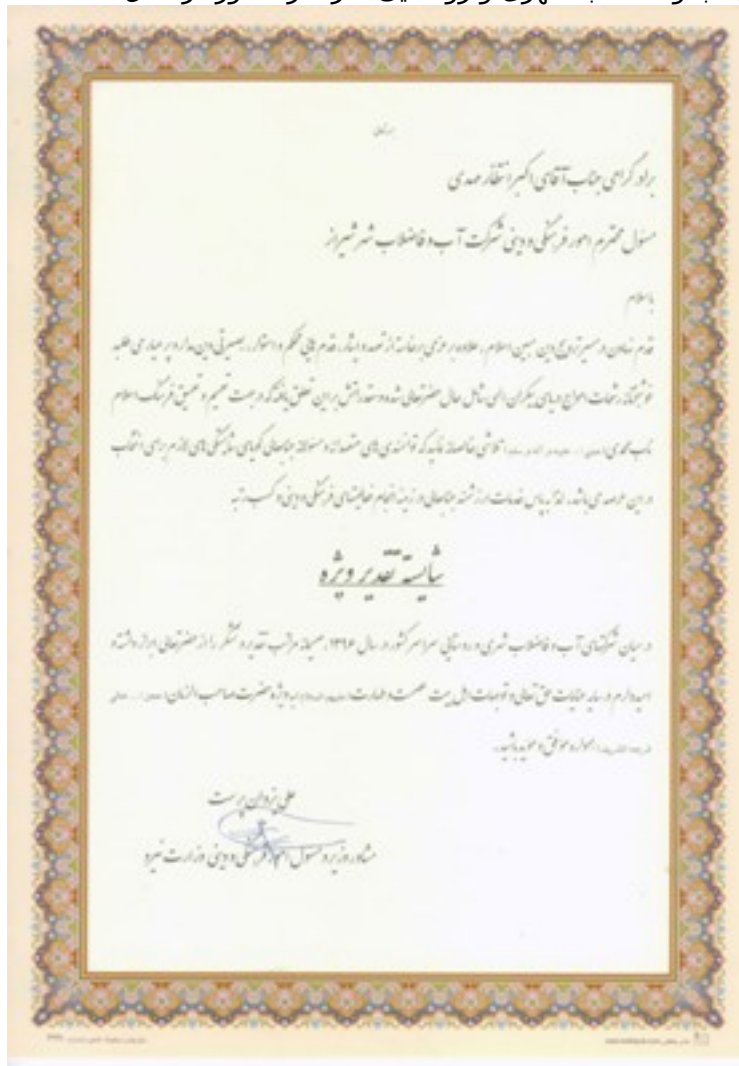 برادر گرامی جناب آقای اکبر انتظار مهدی
مسئول محترم امور فرهنگی و دینی شرکت آب و فاضلاب شهر شیراز
با سلام
قدم نهادن در مسیر ترویج دین مبین اسلام، علاوه بر عزمی برخاسته از تعهد و ایثار، قدم هایی محکم و استوار، بصیرتی دین مدار و پر عیار می طلبد
خوشبختانه رشحات امواج دریای بیکران الهی شامل حال حضرتعالی شده و مقدراتش بر این تعلق یافته که در جهت تعمیم و تعمیق فرهنگ اسلام
ناب محمدی تلاشی خالصانه نمایید که توانمندی های متعهدانه و مسئولانه جنابعالی گویای شایستگی های لازم برای انتخاب
در این عرصه می باشد. لذا به پاس خدمات ارزشمند جنابعالی در زمینه انجام فعالیتهای فرهنگی و دینی و کسب رتبه
شایسته تقدیر ویژه
در میان شرکتهای آب و فاضلاب شهری و روستایی سراسر کشور در سال ۱۳۹۶، صمیمانه مراتب تقدیر و تشکر را از حضرتعالی ابراز داشته
امیدوارم در سایه عنایات حق تعالی و توجهات اهل بیت عصمت و طهارت به ویژه حضرت صاحب الزمان
همواره موفق و موید باشید.
علی یزدان پرست
مشاور وزیر و مسئول امور فرهنگی و دینی وزارت نیرو